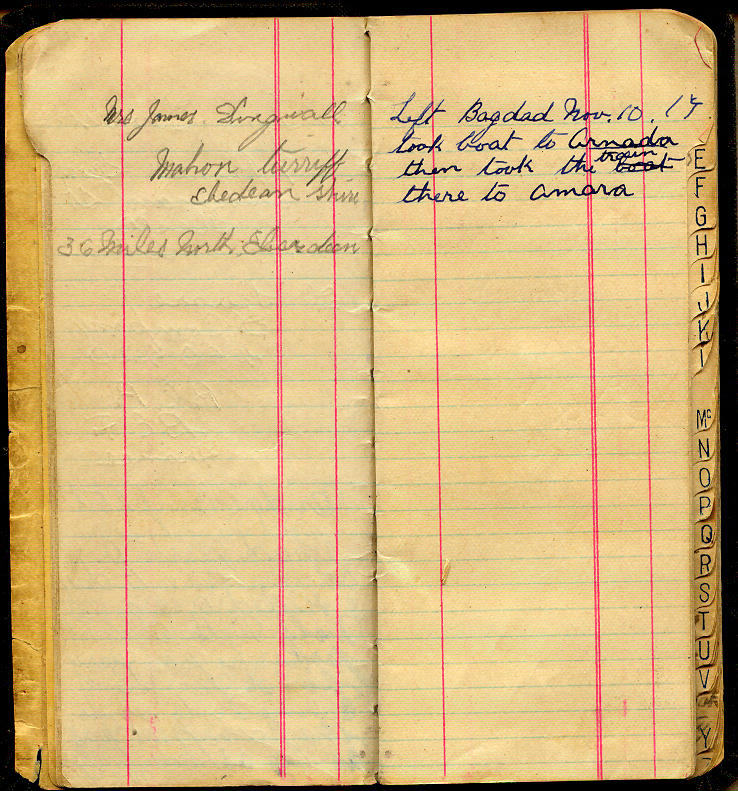 Mrs James Dingwall
Mahon turriff
Ebedean Shire
36 Miles North. Ebedean
Left Bagdad Nov. 10. 17
took boat to Arnada
then took the train boat
there to Amara
E
F
G
H
I
J
K
L
Mc
N
O
P
Q
R
S
T
U
V
Y